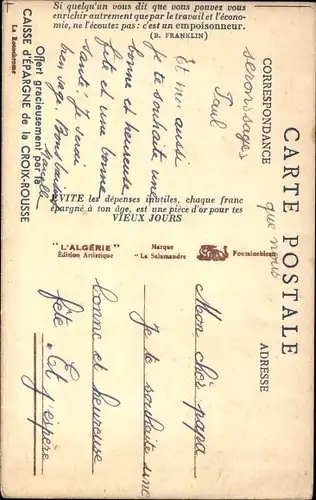 Si quelqu'un vous dit que vous pouvez vous
enrichir autrement que par le travail et l'écono-
mie, ne l'écoutez pas : c'est un empoisonneur.
(B. FRANKLIN)
EVITE les dépenses inutiles, chaque franc
épargné à ton âge, est une pièce d'or pour tes
VIEUX JOURS
"L'ALGÉRIE"
Édition Artistique
Marque
"La Salamandre
Fontainebleau
CARTE POSTALE
CORRESPONDANCE
ADRESSE
Mon cher papa
Je te souhaite une
bonne et heureuse
fête. Et j'espère
que nous
serons sages
Paul
Et moi aussi
je te souhaite une
bonne et heureuse
fête et une bonne
santé. Je serai
bien sage. Bons baisers
Offert gracieusement par la
CAISSE D'ÉPARGNE de la CROIX-ROUSSE